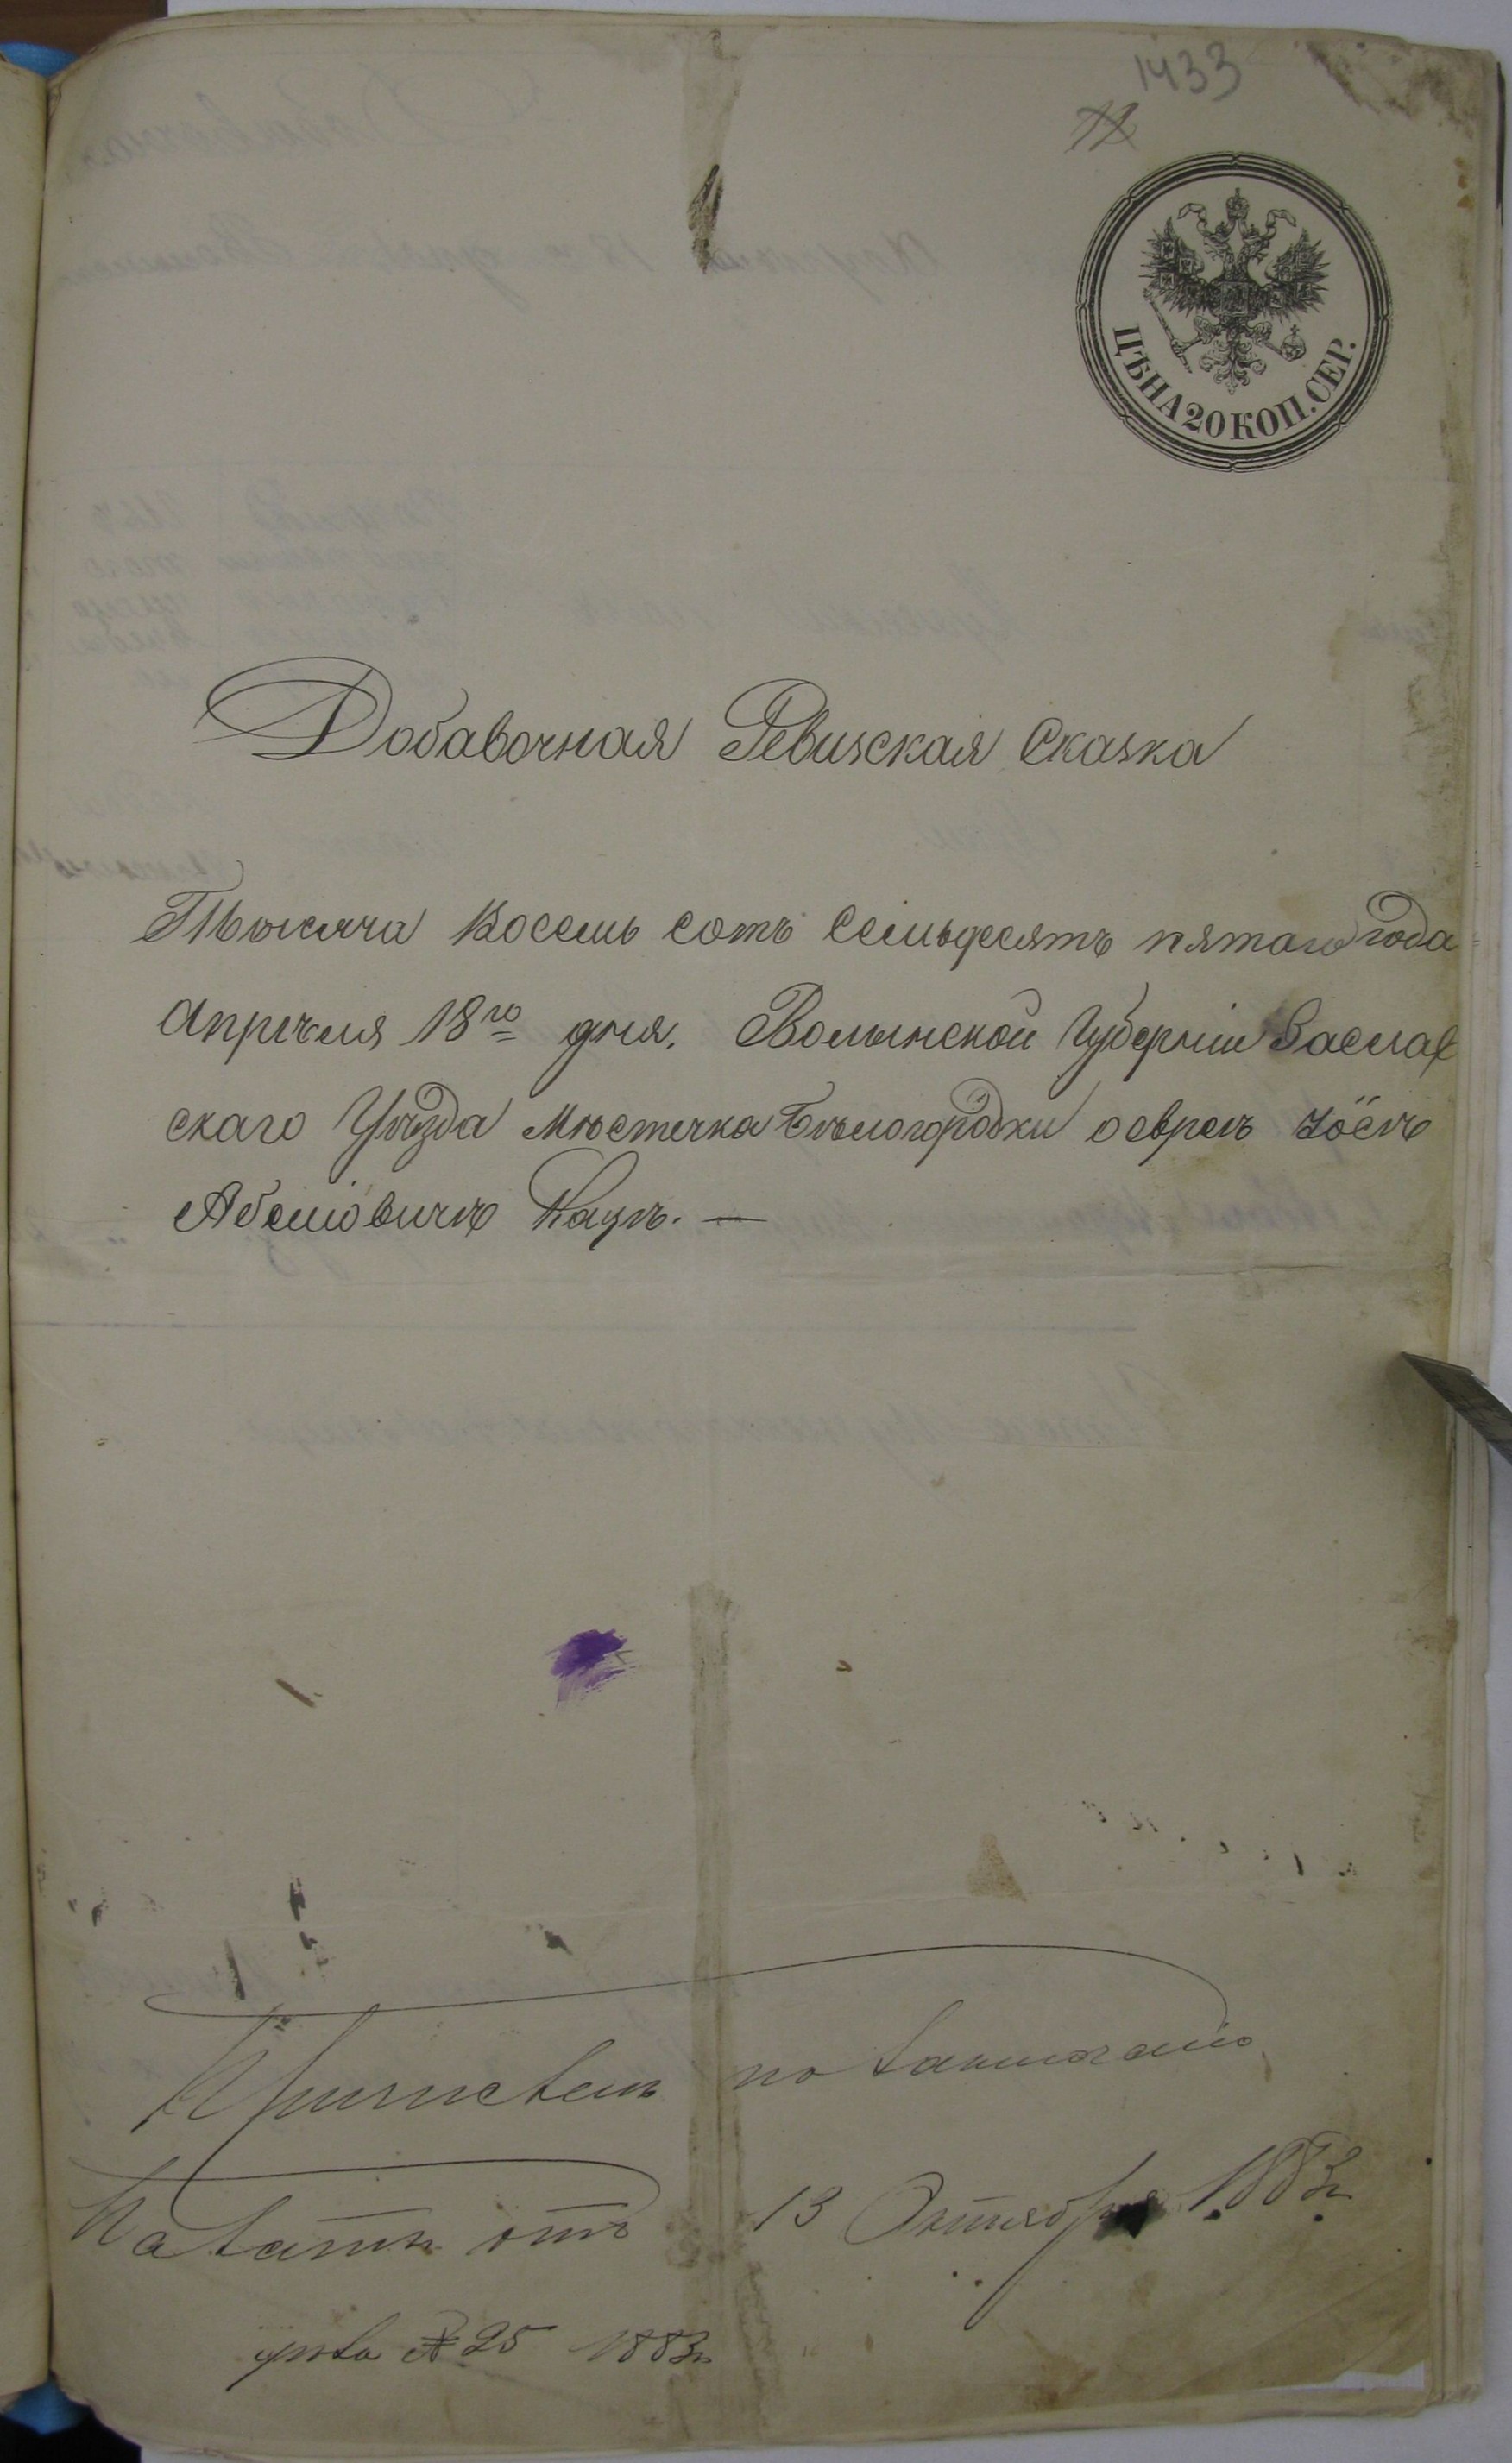 1433
ЦѢНА 20 КОП. СЕР.
Добавочная Ревизская Сказка
Тысяча восемь сотъ семьдесятъ пятаго года
Апрѣля 18го дня. Волынской Губерніи Заслав
скаго Уѣзда Мѣстечка Бѣлогородки о евреѣ Іосѣ
Абеліовичѣ Кацѣ. —
по
отъ 13 Октября 1883 г.
дѣла № 25 1883 г.